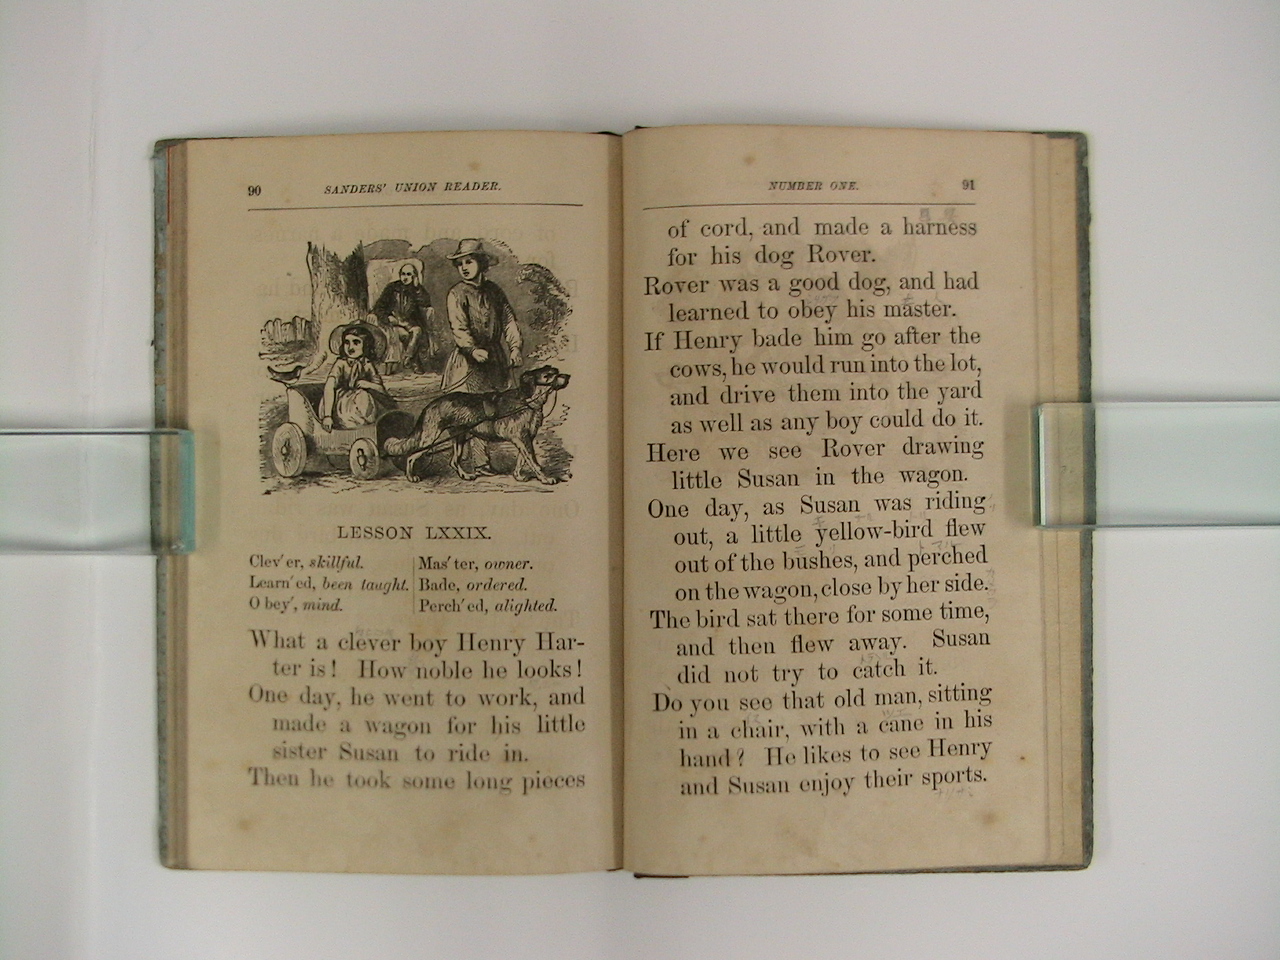 90
SANDERS' UNION READER.
LESSON LXXIX.
Clev'er, skillful.
Learn'ed, been taught.
O bey', mind.
Mas'ter, owner.
Bade, ordered.
Perch'ed, alighted.
What a clever boy Henry Har-
ter is! How noble he looks!
One day, he went to work, and
made a wagon for his little
sister Susan to ride in.
Then he took some long pieces
NUMBER ONE.
91
of cord, and made a harness
for his dog Rover.
Rover was a good dog, and had
learned to obey his master.
If Henry bade him go after the
cows, he would run into the lot,
and drive them into the yard
as well as any boy could do it.
Here we see Rover drawing
little Susan in the wagon.
One day, as Susan was riding
out, a little yellow-bird flew
out of the bushes, and perched
on the wagon, close by her side.
The bird sat there for some time,
and then flew away. Susan
did not try to catch it.
Do you see that old man, sitting
in a chair, with a cane in his
hand? He likes to see Henry
and Susan enjoy their sports.